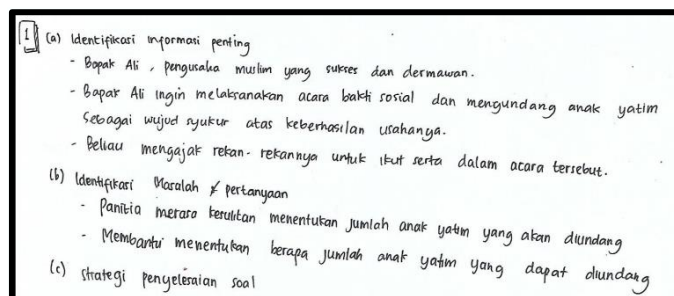 1 (a) Identifikasi informasi penting
- Bapak Ali, pengusaha muslim yang sukses dan dermawan.
- Bapak Ali ingin melaksanakan acara bakti sosial dan mengundang anak yatim
sebagai wujud syukur atas keberhasilan usahanya.
- Beliau mengajak rekan-rekannya untuk ikut serta dalam acara tersebut.
(b) Identifikasi Masalah & pertanyaan
- Panitia merasa kesulitan menentukan jumlah anak yatim yang akan diundang
- Membantu menentukan berapa jumlah anak yatim yang dapat diundang
(c) strategi penyelesaian soal